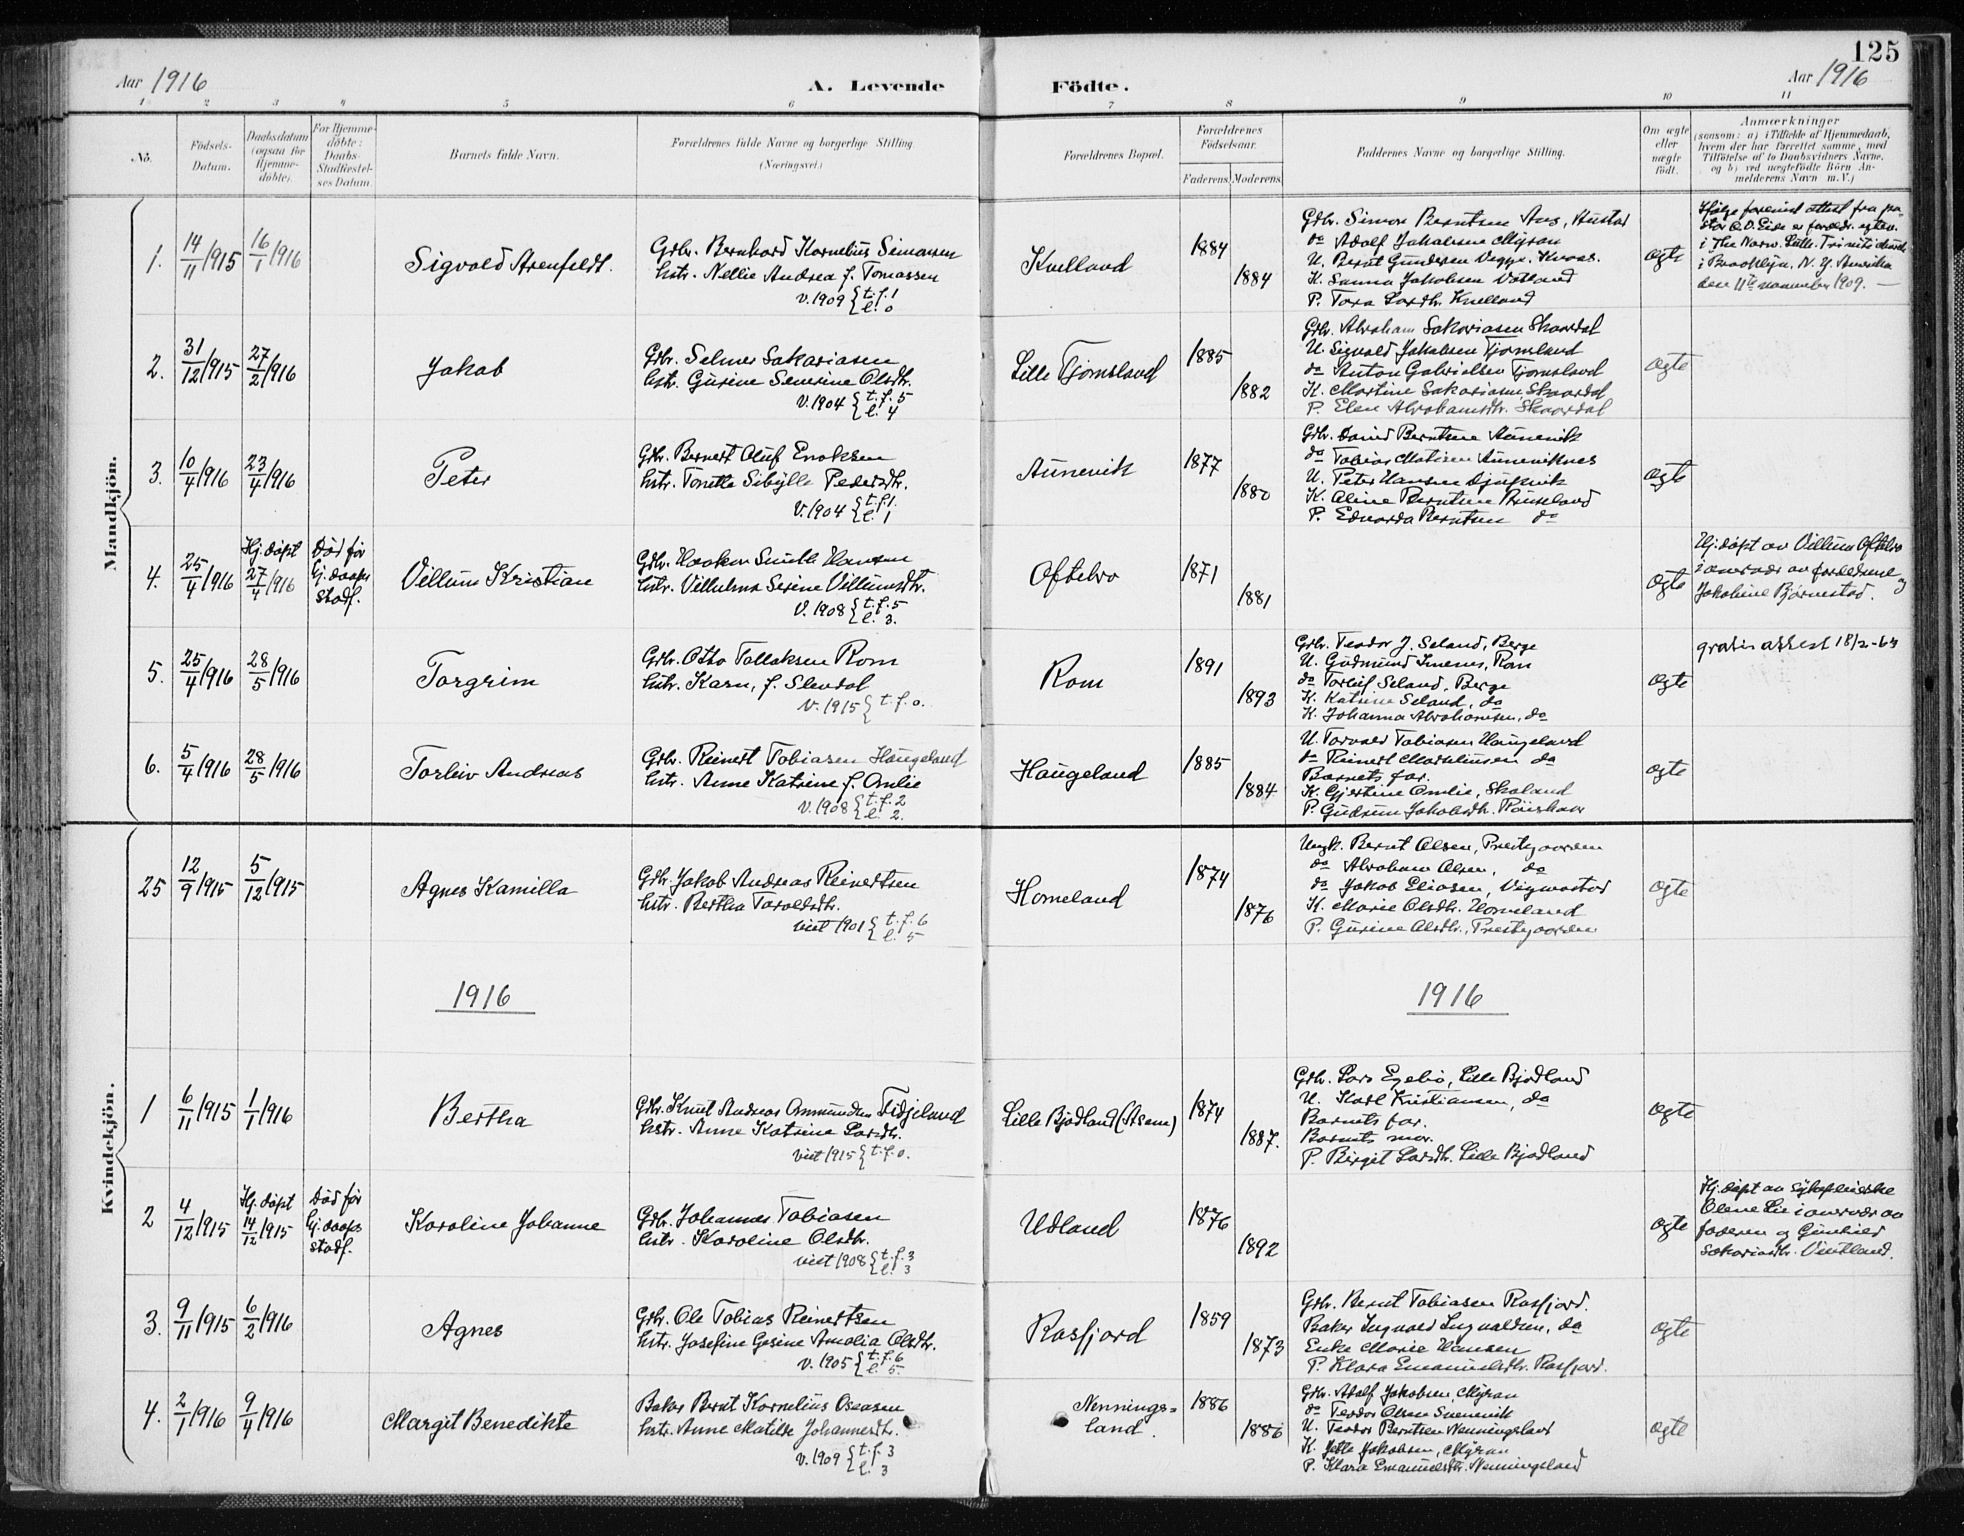 125
Aar 1916
A. Levende
Födte.
Aar 1916
1 2 3 4 5 6 7 8 9 10 11
No.
Födsels-
Datum.
Daabsdatum
(ogsaa for
Hjemme-
döbte).
For Hjemme-
döbte:
Daabs-
Stadfæstel-
ses Datum.
Barnets fulde Navn.
Forældrenes fulde Navne og borgerlige Stilling
(Næringsvei.)
Forældrenes Bopæl.
Forældrenes
Födselsaar.
Faderens. Moderens.
Faddernes Navne og borgerlige Stilling.
Om ægte
eller
uægte
födt.
Anmærkninger
(saasom: a) i Tilfælde af Hjemmedaab,
hvem der har forrettet samme, med
Tilföielse af to Daabsvidners Navne,
og b) ved uægtefödte Börn An-
melderens Navn m. V.)
Mandkjön.
1. 14/11 1915 16/1 1916
Sigvald Arenfeldt.
Gdbr. Bernhard Kornelius Simonsen
hstr. Nellie Andrea f. Tomassen
v. 1909 { t. f. 1
l. 0
Kvelland
1884
1884
Gdbr. Simon Berntsen Aas, Hustad
do Adolf Jakobsen Myran
U. Bernt Gundersen Vegge, Kvaas.
K. Sanna Jakobsen Vatland
P. Tora Larsdtr. Kvelland
ægte
Ifølge foreviset attest fra pa-
stor
i The Norw. Luth. Triniti church
i Brooklyn, N. Y. Amerika
den 11te november 1909. —
2. 31/12 1915 27/2 1916
Jakob
Gdbr. Selmer Sakariasen
hstr. Gurine Severine Olsdtr.
v. 1904 { t. f. 5
l. 4
Lille Tjomsland
1885
1882
Gdbr. Abraham Sakariasen Skaardal
U. Sigvald Jakobsen Tjomsland
do Anton Gabrielsen Tjomsland
K. Martine Sakariasen Skaardal
P. Elen Abrahamsdtr. Skaardal
ægte
3. 10/4 1916 23/4 1916
Peter
Gdbr. Bernert Oluf Enoksen
hstr. Tonette Sibylle Pedersdtr.
v. 1904 { t. f. 1.
l. 1
Aunevik
1877
1880
Gdbr. David Berntsen Aunevik
do Tobias Matisen Auneviknes
U. Peter Hansen Djupvik
K. Aline Berntsen
P. Edvarda Berntsen do
ægte
4. 25/4 1916
Hj. døpt
27/4 1916
Død før
hj. daaps
stadf.
Villum Kristian
Gdbr. Haakon Smith Hansen
hstr. Vilhelma Serine Villumsdtr.
v. 1908 { t. f. 5
l. 3.
Oftebro
1871
1881
ægte
Hj. døpt av Villum Oftebro
i overvær av forældrene og
Jakobine Bjørnestad.
5. 25/4 1916 28/5 1916
Torgrim
Gdbr. Otto Tollaksen Rom
hstr. Karen, f. Slevdal
v. 1915 { t. f. 0.
Rom
1891
1893
Gdbr. Teodor J. Seland, Berge
U. Gudmund Imenes, Rom
do Torleif Seland, Berge
K. Katrine Seland, do
K. Johanna Abrahamsen, do
ægte
gratis attest 18/2-63
6. 5/4 1916 28/5 1916
Torleiv Andreas
Gdbr. Reinert Tobiasen Haugeland
hstr. Anne Katrine f. Omlie
v. 1908 { t. f. 2
l. 2.
Haugeland
1885
1884
U. Torvald Tobiasen Haugeland
do Reinert Markussen do
Barnets far.
K. Gjertine Omlie, Skoland
P. Gudrun Jakobsdtr.
ægte
Kvindekjön.
25 12/9 1915 5/12 1915
Agnes Kamilla
Gdbr. Jakob Andreas Reinertsen
hstr. Bertha Taraldsdtr.
viet 1901 { t. f. 6
l. 5
Homeland
1874
1876
Ungk. Bernt Olsen, Prestegaarden
do Abraham Olsen, do
do Jakob Eliasen, Vigmostad
K. Marie Olsdtr. Homeland
P. Gurine Olsdtr., Prestegaarden
ægte
1916
1916
1 6/11 1915 1/1 1916
Bertha
Gdbr. Knut Andreas Onmundsen Fidjeland
hstr. Anne Katrine Larsdtr.
viet 1915 { t. f. 0.
Lille Bjødland (Aseim)
1874
1887.
Gdbr. Lars Egebø, Lille Bjødland
U. Karl Kristiansen, do
Barnets far.
Barnets mor.
P. Birgit Larsdtr. Lille Bjødland
ægte
2 4/12 1915
Hj. døpt
14/12 1915
Død før
hj. daaps
stadf.
Karoline Johanne
Gdbr. Johannes Tobiasen
hstr. Karoline Olsdtr.
viet 1908 { t. f. 3
l. 3
Udland
1876
1892
ægte
Hj. døpt av sykepleierske
Olene Lie i overvær av
faderen og Gunhild
Sakariasdtr. Vintland.
3. 9/11 1915 6/2 1916
Agnes
Gdbr. Ole Tobias Reinertsen
hstr. Josefine Gesine Amalia Olsdtr.
v. 1905 { t. f. 6
l. 5.
Rosfjord
1859
1873
Gdbr. Bernt Tobiasen Rosfjord.
Baker Ingvald Ingvaldsen, do
Enke Marie Hansen
P. Klara Emanuelsdtr. Rosfjord.
ægte
4. 2/1 1916 9/4 1916
Margit Benedikte
Baker Bernt Kornelius Oseasen
hstr. Anne Matilde Johannesdtr.
v. 1909 { t. f. 3
l. 3
Nennings=
land.
1886
1886
Gdbr. Adolf Jakobsen, Myran
do Teodor Olsen Svenevik
U. Teodor Berntsen Nenningsland
K. Jette Jakobsen, Myran
P. Klara Emanuelsdtr. Nenningsland
ægte